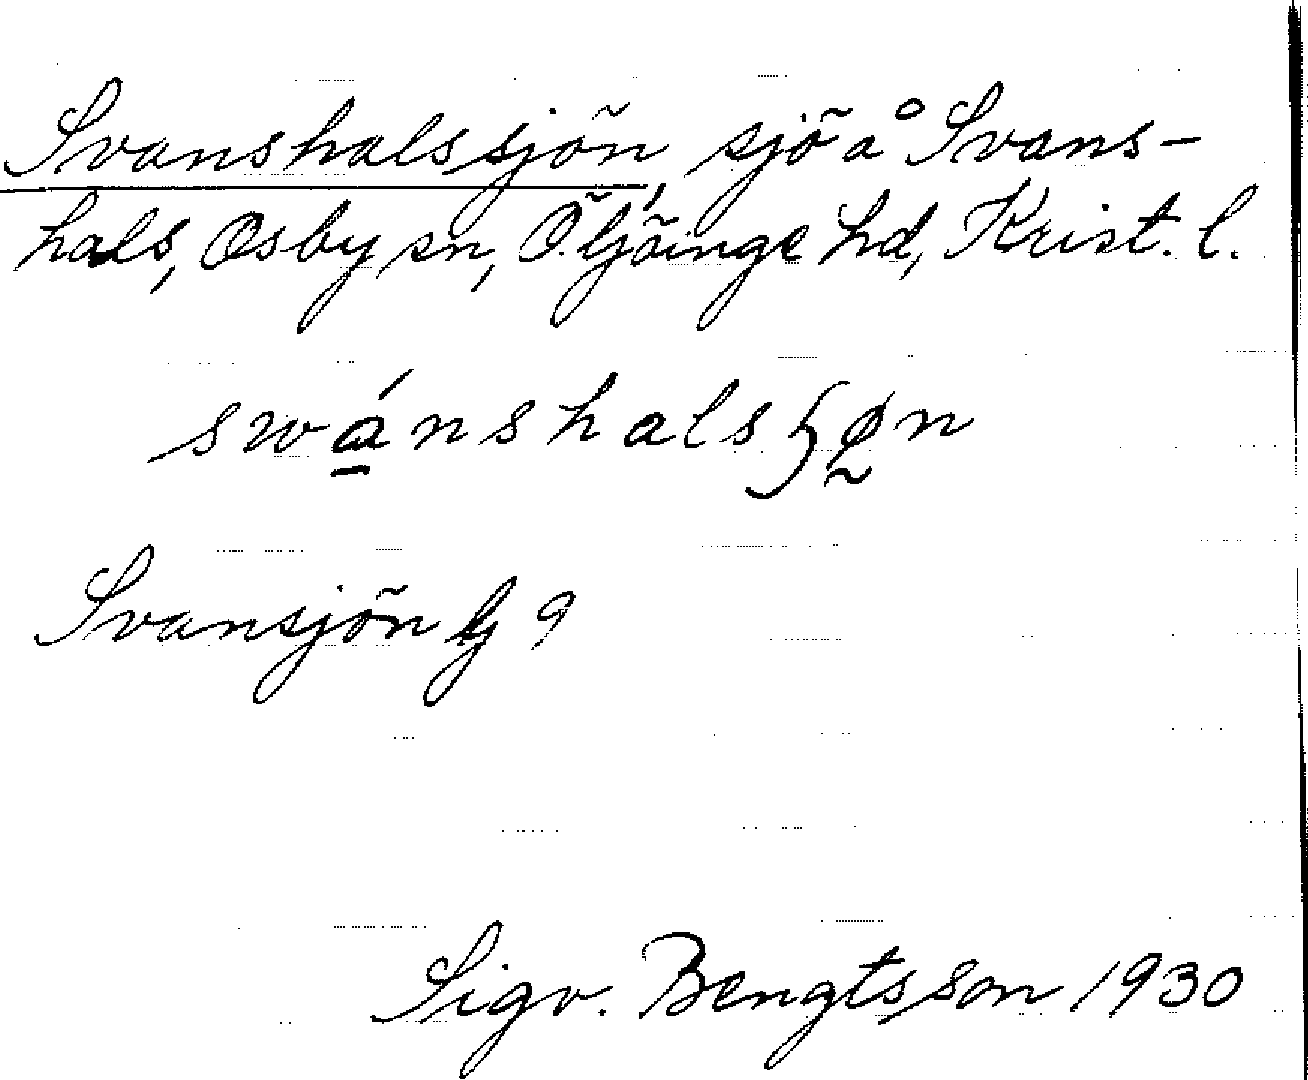 Svanshalssjön, sjö å Svans-
hals, Osby sn, Ö. Göinge hd, Krist. l.
swánshalsʃøn
Svansjön G 9
Sigv. Bengtsson 1930